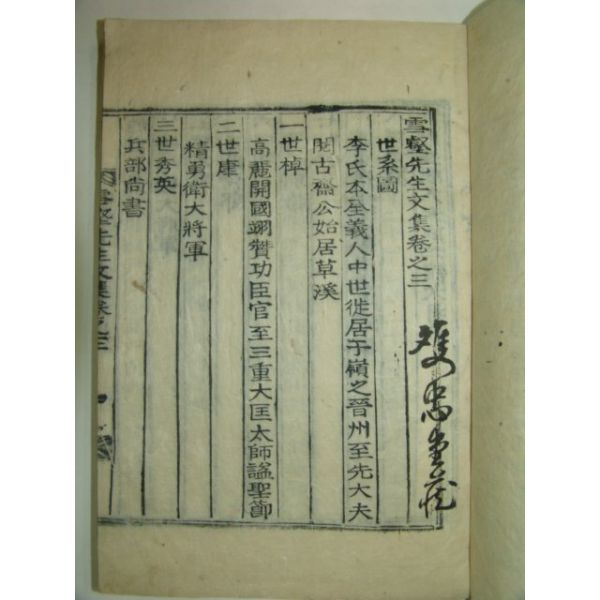 雪壑先生文集卷之三
世系圖
李氏本全義人中世徙居于嶺之晉州至先大夫
閑古齋公始居草溪
一世棹
高麗開國翊贊功臣官至三重大匡太師諡聖節
二世康
精勇衛大將軍
三世秀英
兵部尙書
雪壑先生文集卷之三
忠孝堂藏